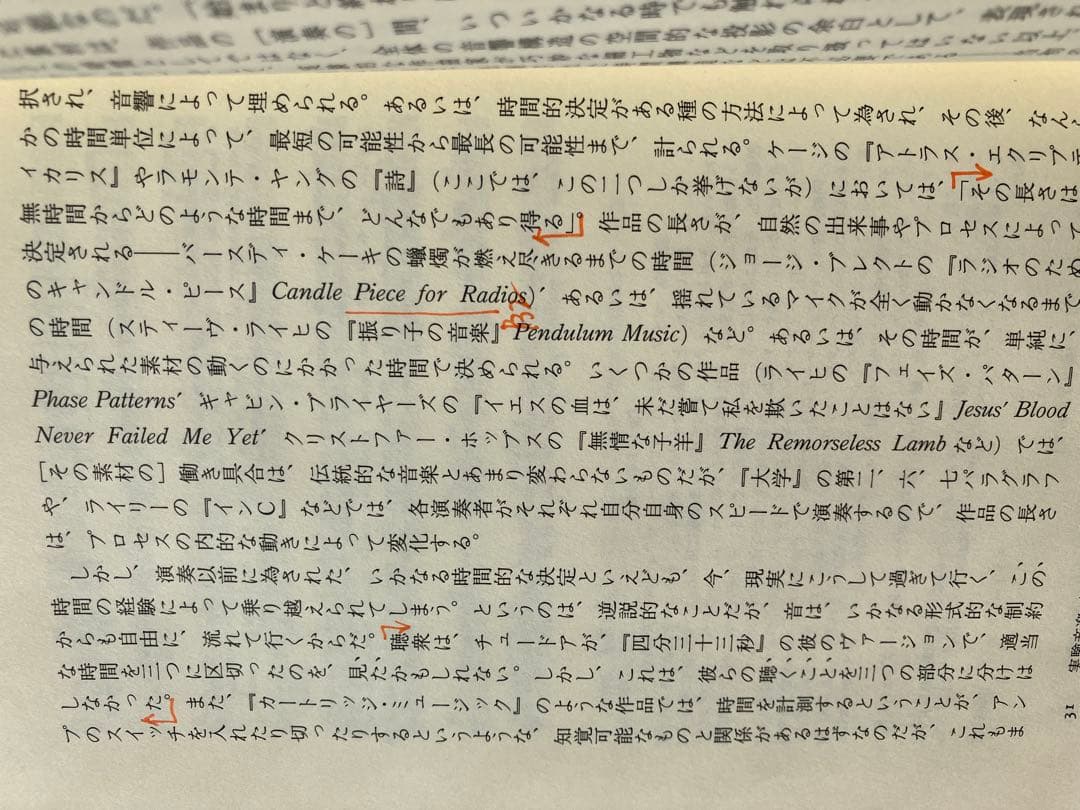 択され、音響によって埋められる。あるいは、時間的決定がある種の方法によって為され、その後、なん
かの時間単位によって、最短の可能性から最長の可能性まで、計られる。ケージの『アトラス・エクリプテ
イカリス』やラモンテ・ヤングの『詩』(ここでは、この二つしか挙げないが)においては、「その長さは
無時間からどのような時間まで、どんなでもあり得る」。作品の長さが、自然の出来事やプロセスによって
決定される——バースディ・ケーキの蠟燭が燃え尽きるまでの時間(ジョージ・ブレクトの『ラジオのため
のキャンドル・ピース』Candle Piece for Radios)、あるいは、揺れているマイクが全く動かなくなるまで
の時間(スティーヴ・ライヒの『振り子の音楽』Pendulum Music)など。あるいは、その時間が、単純に、
与えられた素材の動くのにかかった時間で決められる。いくつかの作品(ライヒの『フェイズ・パターン』
Phase Patterns、ギャビン・ブライヤーズの『イエスの血は、未だ嘗て私を欺いたことはない』Jesus' Blood
Never Failed Me Yet、クリストファー・ホッブスの『無情な子羊』The Remorseless Lamb など)では、
[その素材の]働き具合は、伝統的な音楽とあまり変わらないものだが、『大学』の第二、六、七パラグラフ
や、ライリーの『インC』などでは、各演奏者がそれぞれ自分自身のスピードで演奏するので、作品の長さ
は、プロセスの内的な動きによって変化する。
しかし、演奏以前に為された、いかなる時間的な決定といえども、今、現実にこうして過ぎて行く、この、
時間の経験によって乗り越えられてしまう。というのは、逆説的なことだが、音は、いかなる形式的な制約
からも自由に、流れて行くからだ。聴衆は、チュードアが、『四分三十三秒』の彼のヴァージョンで、適当
な時間を三つに区切ったのを、見たかもしれない。しかし、これは、彼らの聴くことを三つの部分に分けは
しなかった。また、『カートリッジ・ミュージック』のような作品では、時間を計測するということが、アン
プのスイッチを入れたり切ったりするというような、知覚可能なものと関係があるはずなのだが、これもま
31